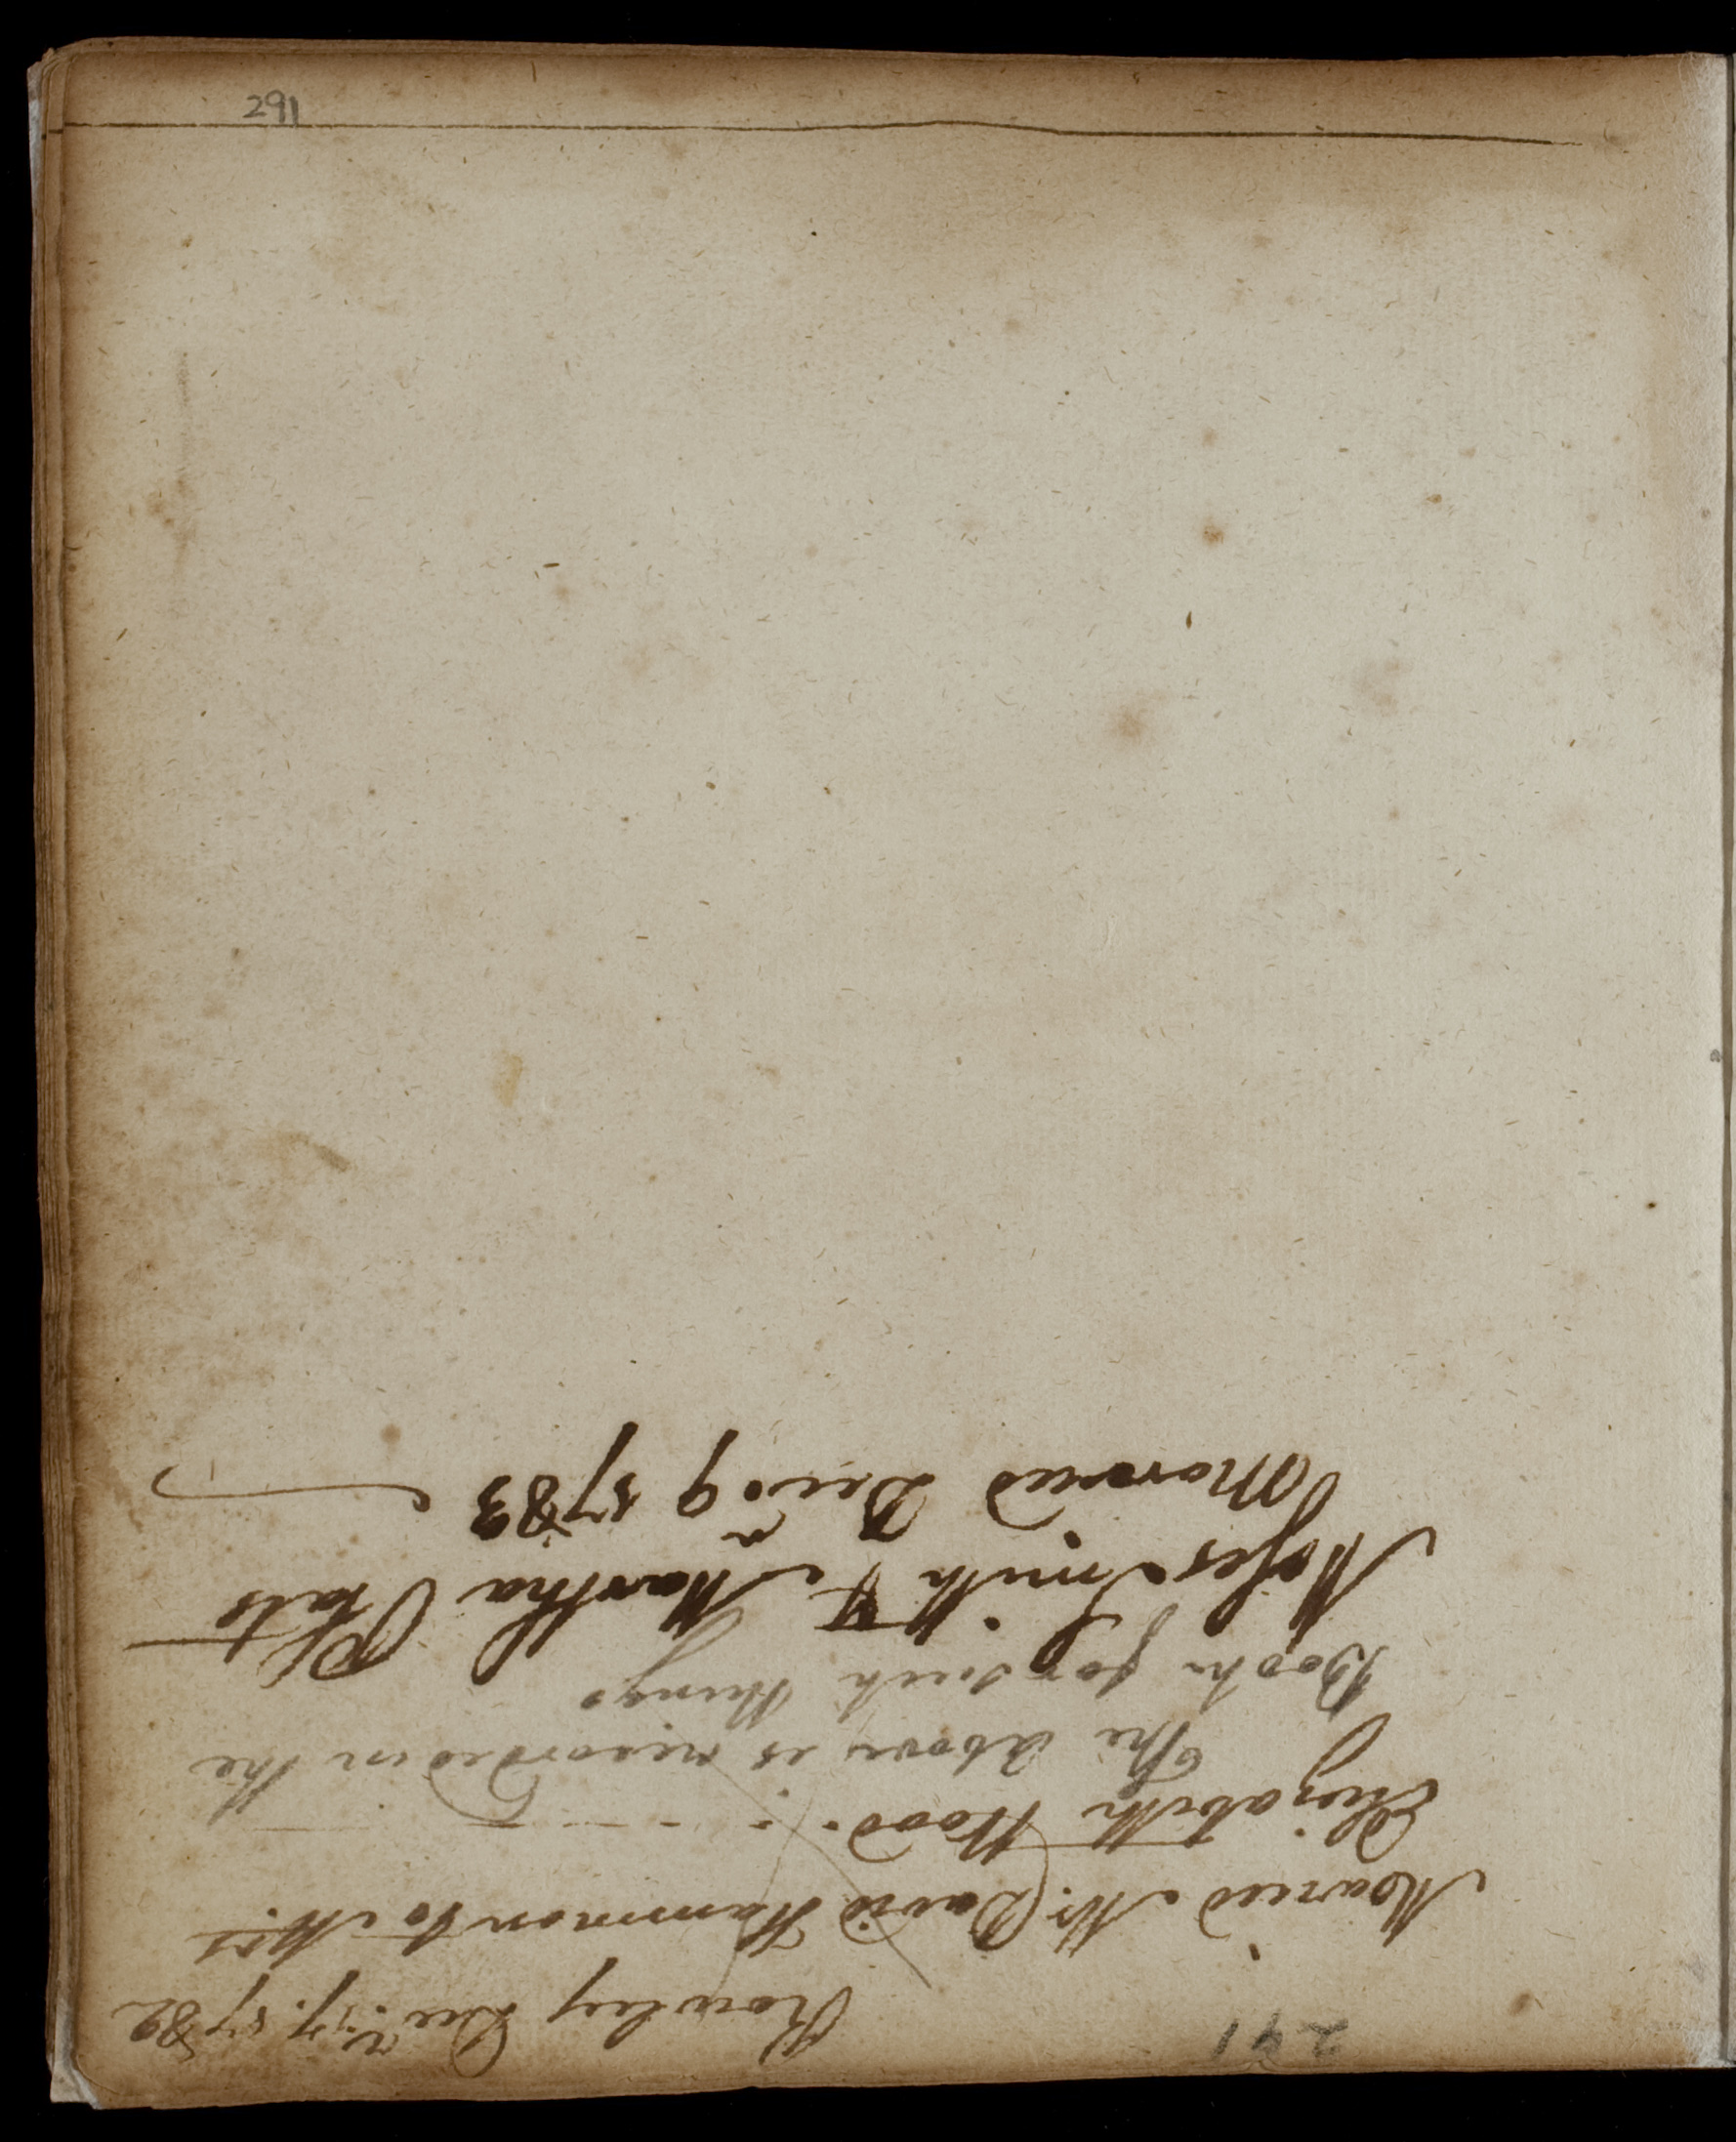 291
291
Rowley Decr. 17. 1782
Maried Mr. David Hammon to Mrs
Elizabeth Wood.
The above is recorded in the
Book for such things
Moses Smith & Martha Plats
Maried Decr 9 1783